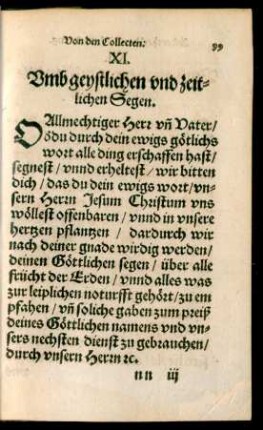 Von den Collecten: 99
XI.
Vmb geystlichen vnd zeit-
lichen Segen.
O Allmechtiger Herr vñ Vater /
so du durch dein ewigs götlichs
wort alle ding erschaffen hast /
segnest / vnnd erheltest / wir bitten
dich / das du dein ewigs wort / vn-
sern Herrn Jesum Christum vns
wöllest offenbaren / vnnd in vnsere
hertzen pflantzen / dardurch wir
nach deiner gnade wirdig werden /
deinen Göttlichen segen / über alle
frücht der Erden / vnnd alles was
zur leiplichen noturfft gehört / zu em
pfahen / vñ soliche gaben zum preiß
deines Göttlichen namens vnd vn-
sers nechsten dienst zu gebrauchen /
durch vnsern Herrn ꝛc.
nn iij